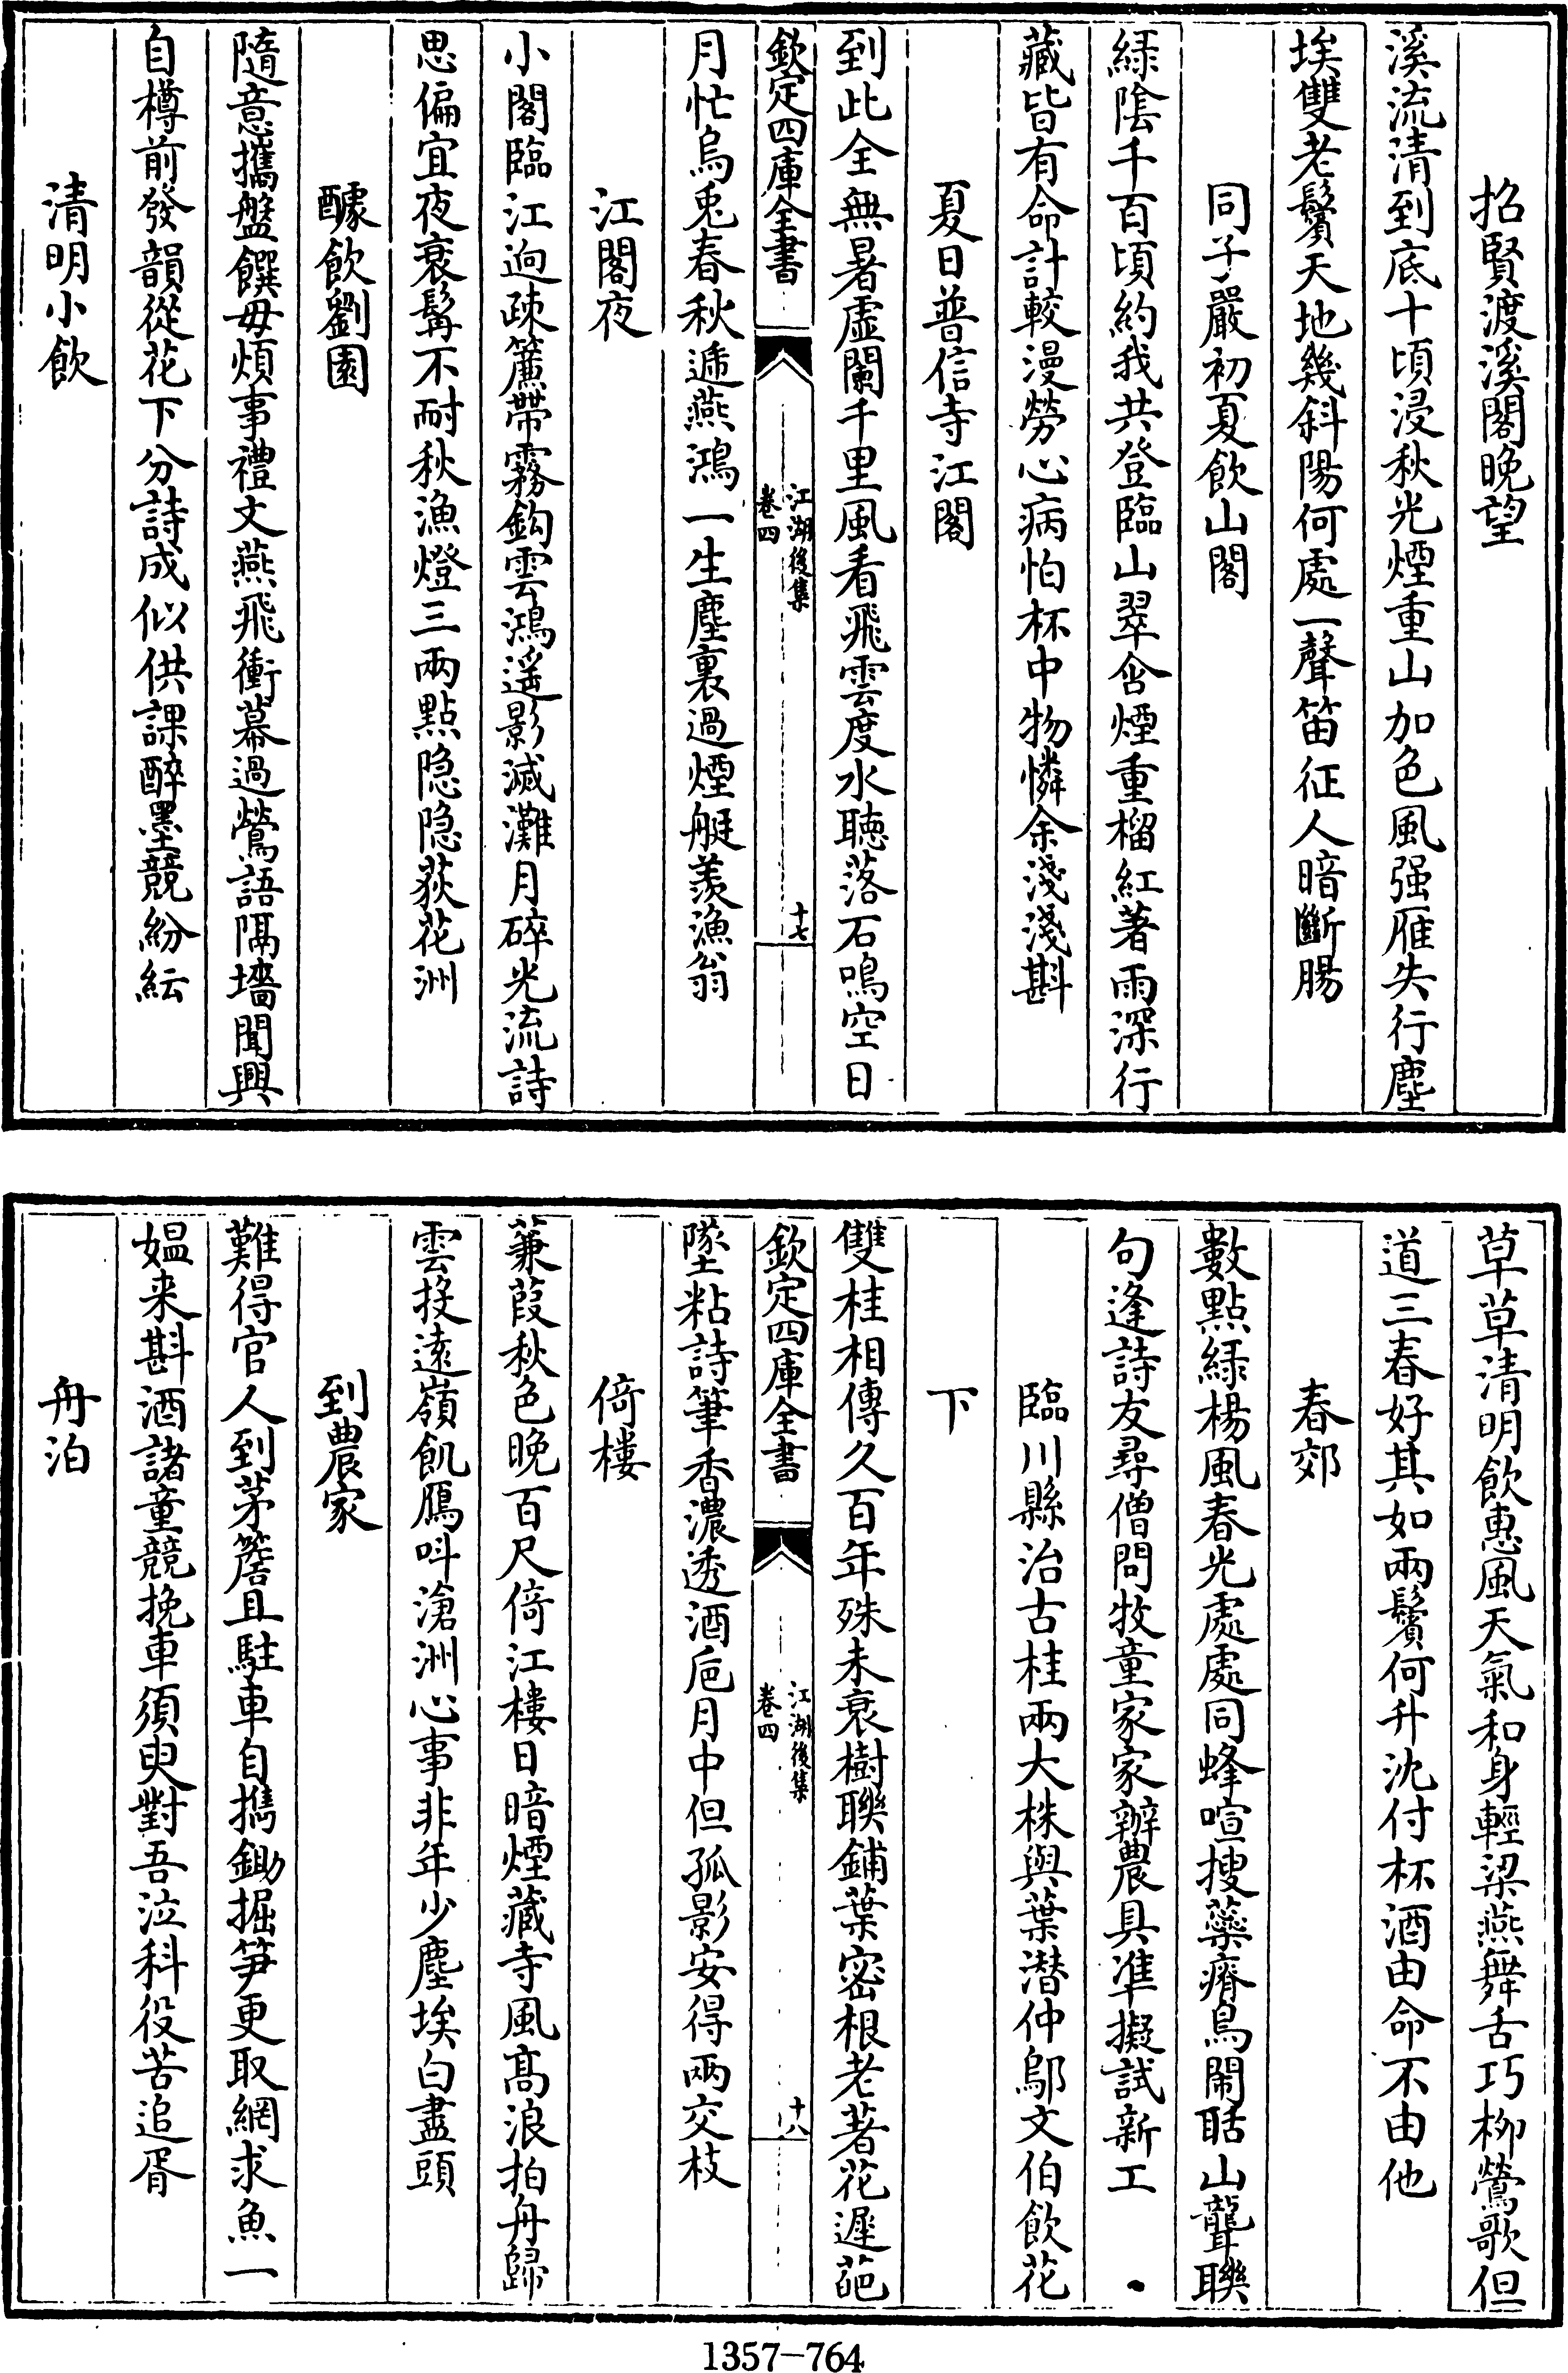 招賢渡溪閣晚望
溪流清到底十頃浸秋光煙重山加色風强雁失行塵
埃雙老鬢天地幾斜陽何處一聲笛征人暗斷腸
同子嚴初夏飲山閣
綠陰千百頃約我共登臨山翠含煙重榴紅著雨深行
藏皆有命計較漫勞心病怕杯中物憐余淺淺斟
夏日普信寺江閣
到此全無暑虛闌千里風看飛雲度水聽落石鳴空日
欽定四庫全書
江湖後集
卷四
十七
月忙烏兎春秋遞燕鴻一生塵裏過煙艇羨漁翁
江閣夜
小閣臨江逈疎簾帶霧鈎雲鴻遥影滅灘月碎光流詩
思偏宜夜衰髯不耐秋漁燈三兩點隐隐荻花洲
醵飲劉園
隨意攜盤饌毋煩事禮文燕飛衝幕過鶯語隔墻聞興
自樽前發韻從花下分詩成似供課醉墨競紛紜
清明小飲
草草清明飲惠風天氣和身輕梁燕舞舌巧柳鶯歌但
道三春好其如兩鬢何升沈付杯酒由命不由他
春郊
數點綠楊風春光處處同蜂喧搜藥瘠鳥閙聒山聾聯
句逢詩友尋僧問牧童家家辦農具準擬試新工
臨川縣治古桂兩大株與葉潛仲鄔文伯飲花
下
雙桂相傳久百年殊未衰樹聯鋪葉密根老著花遲葩
欽定四庫全書
江湖後集
卷四
十八
墜粘詩筆香濃透酒巵月中但孤影安得兩交枝
倚樓
蒹葭秋色晚百尺倚江樓日暗煙藏寺風髙浪拍舟歸
雲投遠嶺飢鴈叫滄洲心事非年少塵埃白盡頭
到農家
難得官人到茅簷且駐車自携鋤掘笋更取網求魚一
媪来斟酒諸童競挽車須臾對吾泣科役苦追胥
舟泊
1357-764